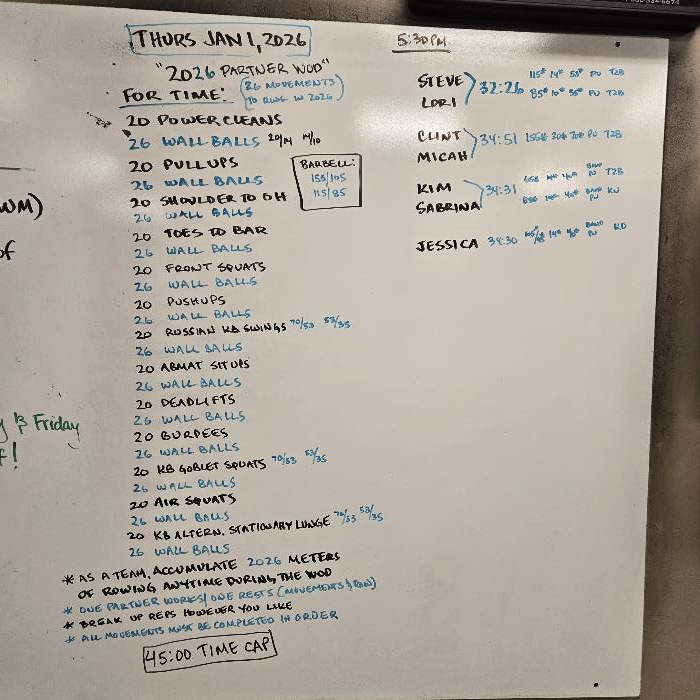 THURS JAN 1, 2026
"2026 PARTNER WOD"
FOR TIME: (26 MOVEMENTS
TO RING IN 2026)
20 POWER CLEANS
26 WALL BALLS 20/14 14/10
20 PULLUPS
26 WALL BALLS
20 SHOULDER TO OH
26 WALL BALLS
BARBELL:
155/105
115/85
20 TOES TO BAR
26 WALL BALLS
20 FRONT SQUATS
26 WALL BALLS
20 PUSHUPS
26 WALL BALLS
20 RUSSIAN KB SWINGS 70/53 53/35
26 WALL BALLS
20 ABMAT SITUPS
26 WALL BALLS
20 DEADLIFTS
26 WALL BALLS
20 BURPEES
26 WALL BALLS
20 KB GOBLET SQUATS 70/53 53/35
26 WALL BALLS
20 AIR SQUATS
26 WALL BALLS
20 KB ALTERN. STATIONARY LUNGE 70/53 53/35
26 WALL BALLS
* AS A TEAM, ACCUMULATE 2026 METERS
OF ROWING ANYTIME DURING THE WOD
* ONE PARTNER WORKS/ONE RESTS (MOVEMENTS & ROW)
* BREAK UP REPS HOWEVER YOU LIKE
* ALL MOVEMENTS MUST BE COMPLETED IN ORDER
45:00 TIME CAP
5:30PM
STEVE 115# 14# 53# PU T2B
32:26
LORI 85# 10# 35# PU T2B
CLINT
34:51 155# 20# 70# PU T2B
MICAH
KIM 65# 14# BAND PU T2B
34:31
SABRINA 14# BAND PU
JESSICA 34:30 14# BAND PU
WM)
of
& Friday
f!